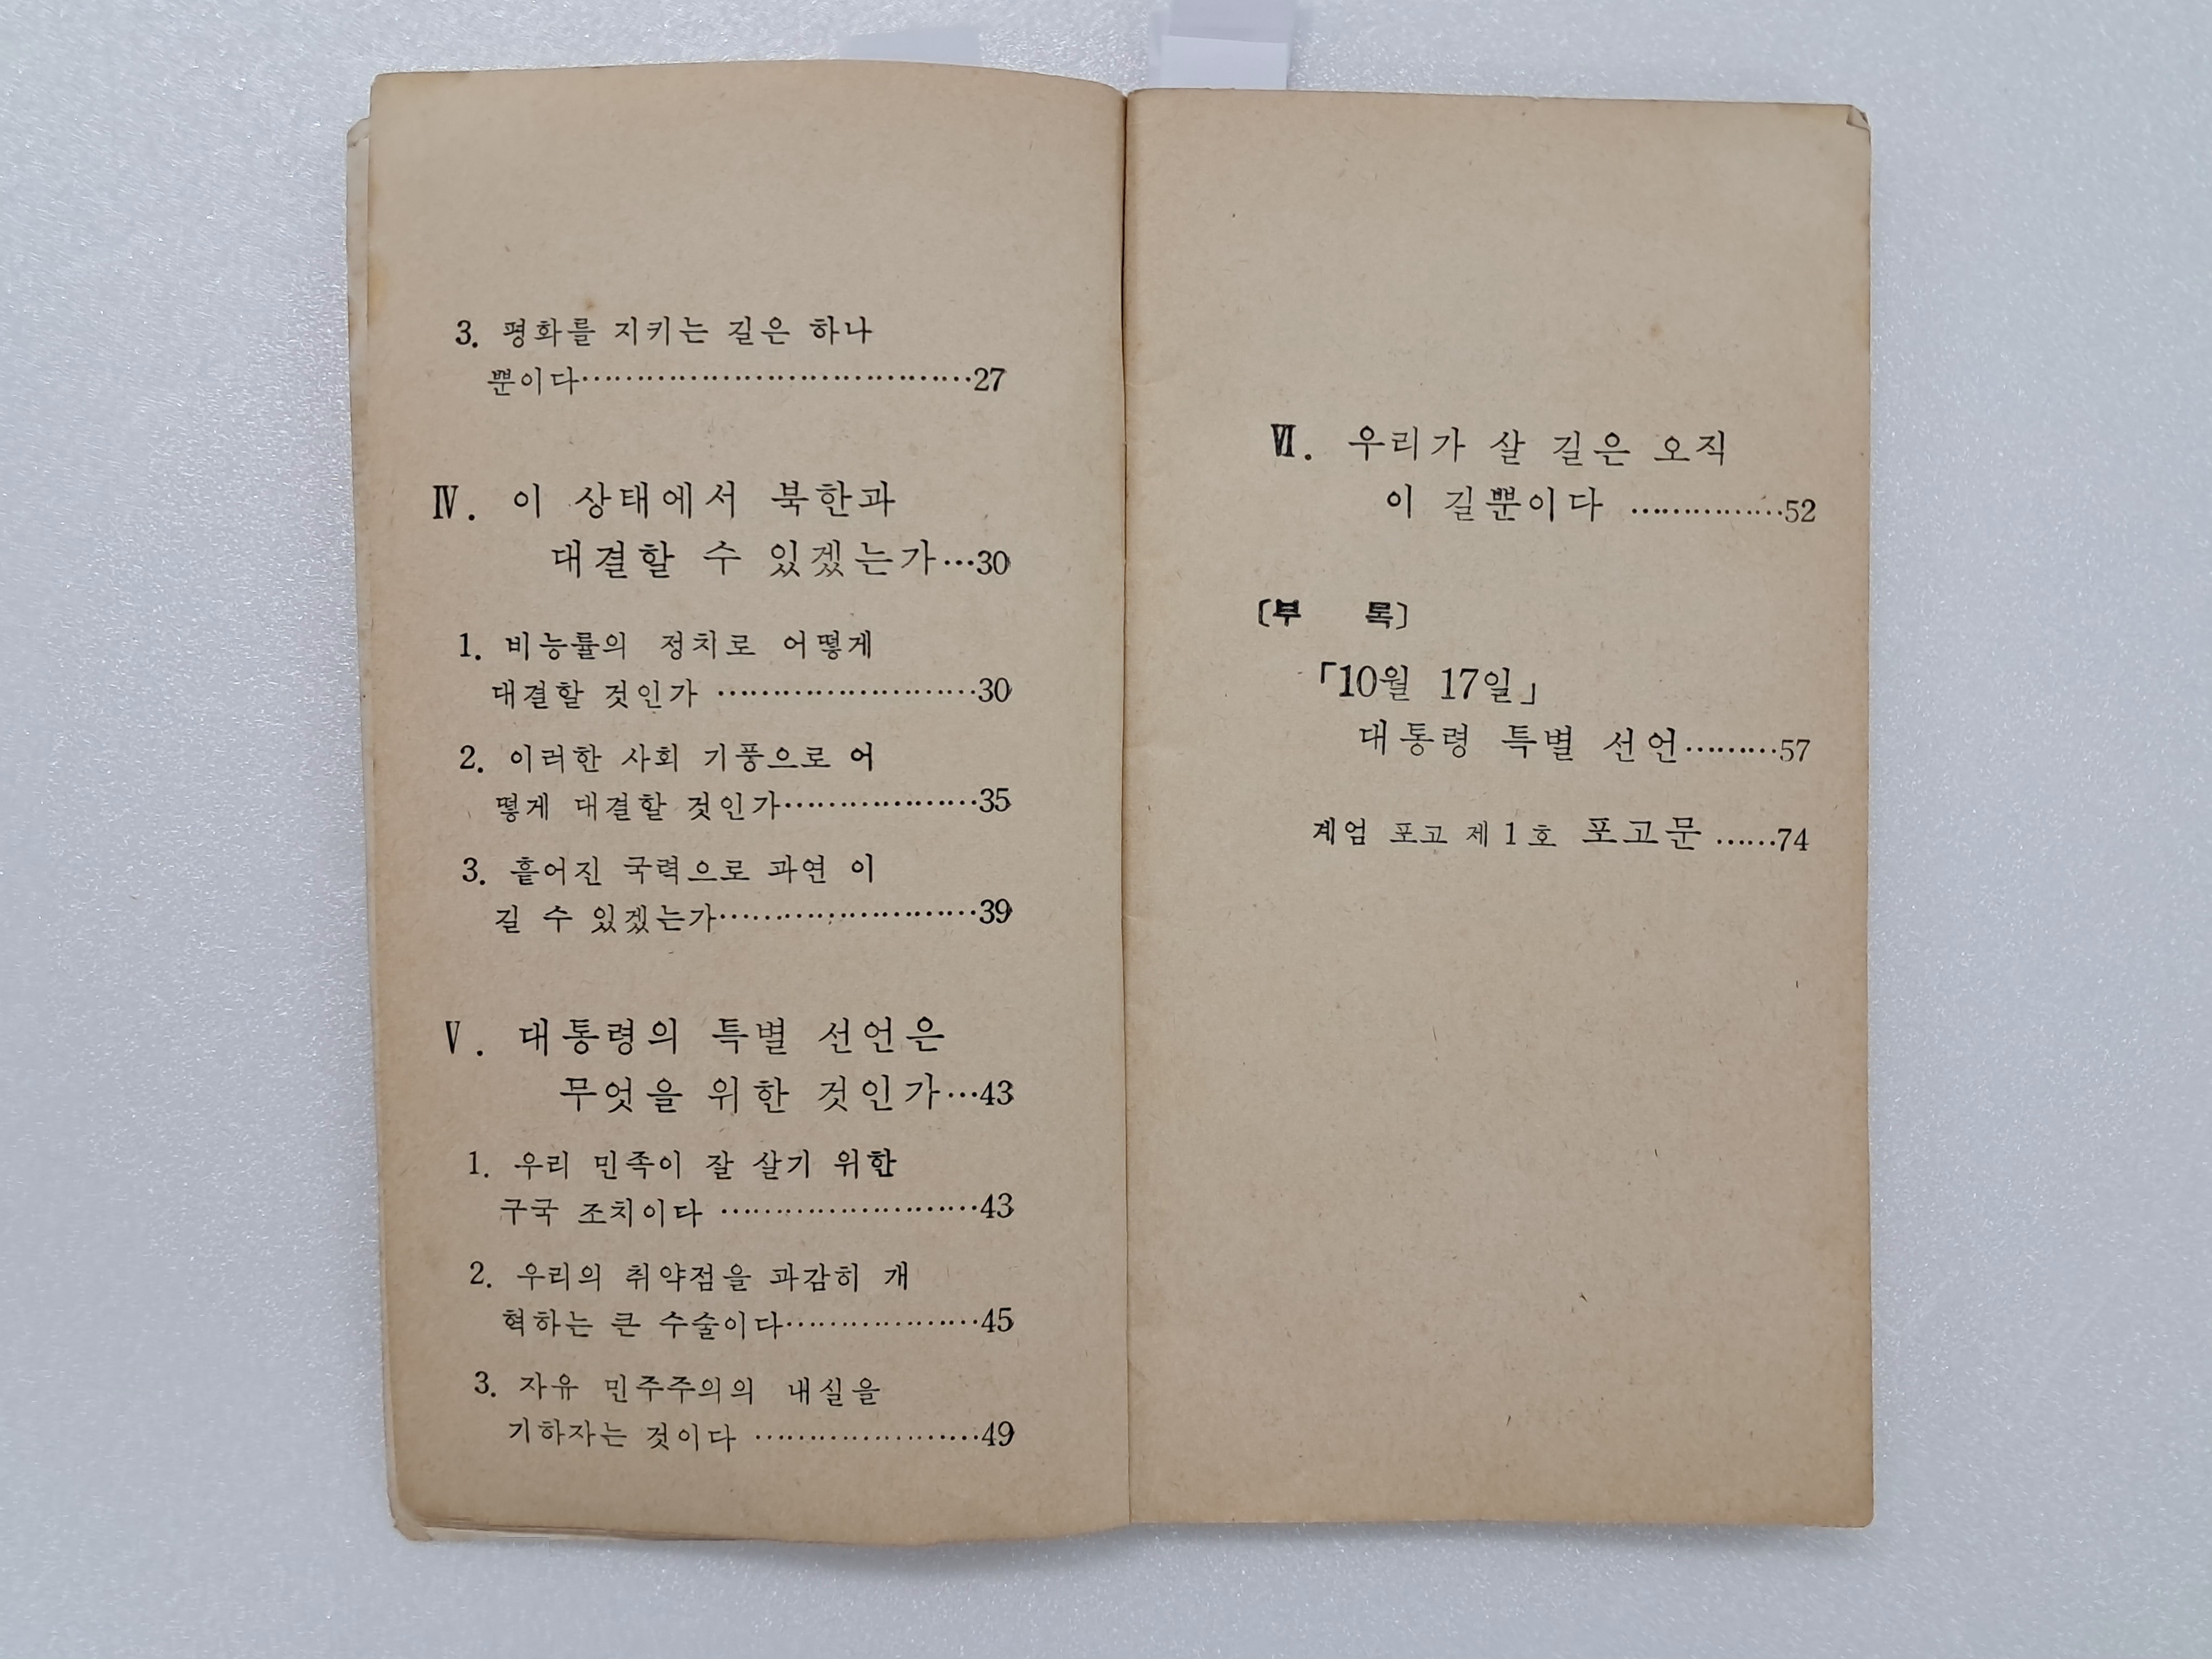 3. 평화를 지키는 길은 하나
뿐이다…………………………………27
Ⅳ. 이 상태에서 북한과
대결할 수 있겠는가…30
1. 비능률의 정치로 어떻게
대결할 것인가 ……………………30
2. 이러한 사회 기풍으로 어
떻게 대결할 것인가………………35
3. 흩어진 국력으로 과연 이
길 수 있겠는가……………………39
Ⅴ. 대통령의 특별 선언은
무엇을 위한 것인가…43
1. 우리 민족이 잘 살기 위한
구국 조치이다 ……………………43
2. 우리의 취약점을 과감히 개
혁하는 큰 수술이다………………45
3. 자유 민주주의의 내실을
기하자는 것이다 …………………49
Ⅵ. 우리가 살 길은 오직
이 길뿐이다 ……………52
〔부 록〕
「10월 17일」
대통령 특별 선언………57
계엄 포고 제1호 포고문 ……74